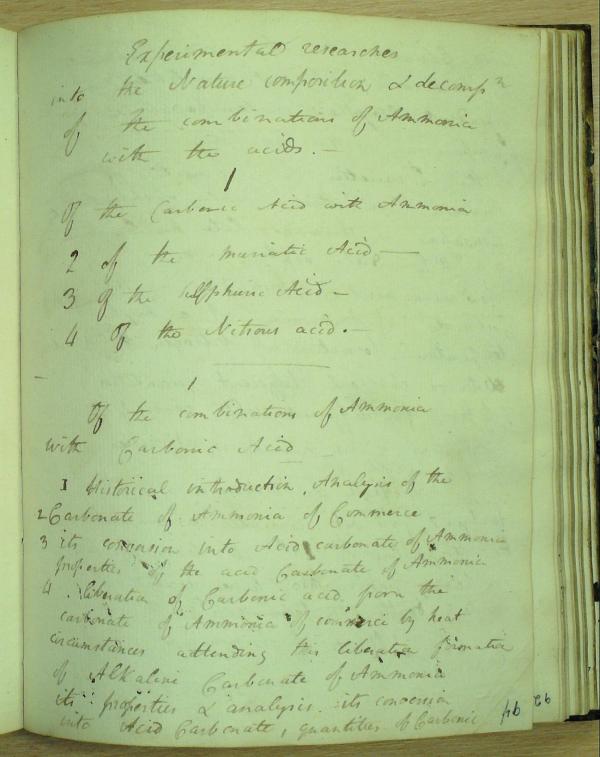 Experimental researches
into the Nature composition & decompn
of the combinations of Ammonia
with the acids. —
1
Of the Carbonic Acid with Ammonia
2 of the muriatic Acid —
3 of the Sulphuric Acid —
4 Of the Nitrous acid. —
1
Of the combinations of Ammonia
with Carbonic Acid
1 Historical introduction. Analysis of the
2 Carbonate of Ammonia of Commerce
3 its conversion into Acid carbonate of Ammonia
properties of the acid Carbonate of Ammonia
4. liberation of Carbonic acid from the
carbonate of Ammonia of commerce by heat
circumstances attending this liberation formation
of Alkaline Carbonate of Ammonia
its properties & analysis. its conversion
into Acid Carbonate, quantities of Carbonic
94
92